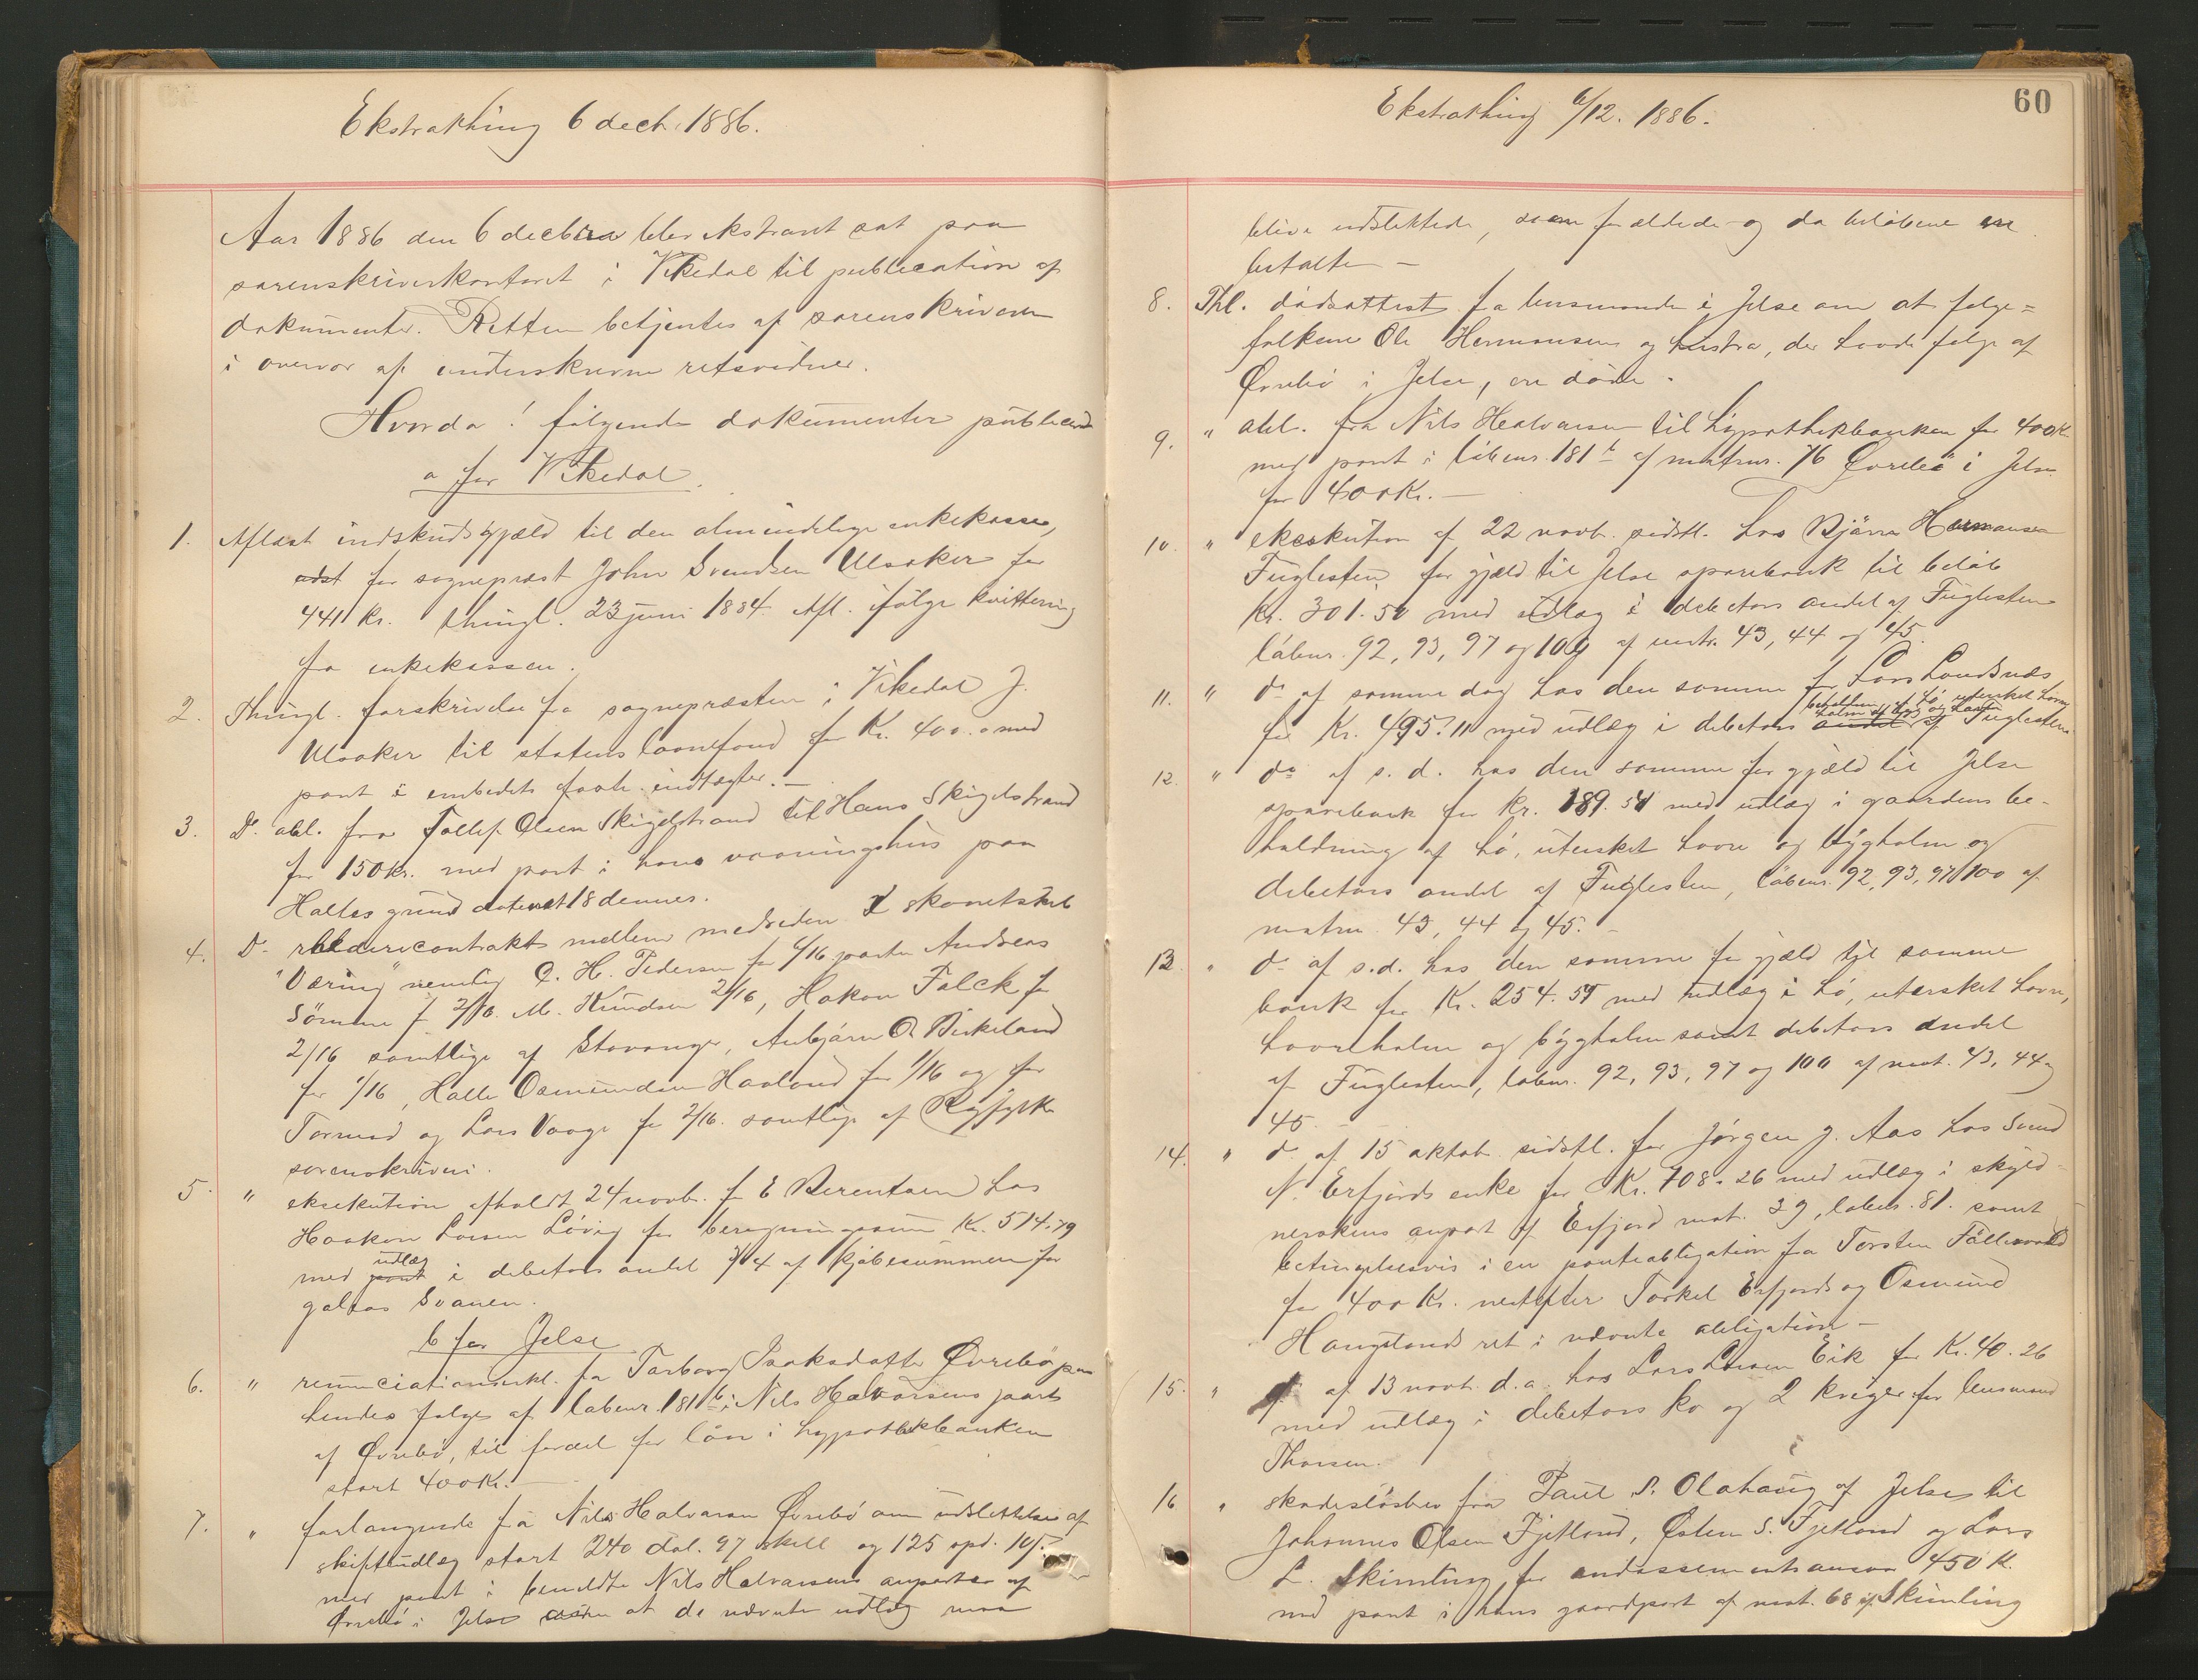 Ekstrathing 6 decb. 1886.
Aar 1886 den 6 decbra blev ekstraret sat paa
sorenskriverkontoret i Vikedal til publication af
dokumenter. Retten betjentes af sorenskriveren
i overvær af underskrevne retsvidner.
Hvorda! følgende dokumenter publicerede
a for Vikedal.
1. Aflæst indskudsgjæld til den almindelige enkekasse,
udst for sogneprest John Svendsen Ulsaker for
441 kr. thingl. 23 juni 1884. Afl. ifølge kvittering
fra enkekassen.
2. Thingl. forskrivelse fra sognepresten i Vikedal J.
Ulsaker til statens laanefond for Kr. 400.0 med
pant i embedets faste indtægter. –
3. Do. obl. fra Tollef Olsen Skigelstrand til Hans Skigelstrand
for 150 kr. med pant i hans vaaningshus paa
Halles grund dateret 18 dennes.
4. Do. rhedericontrakt mellem medrederne I skonnertskib
"Væring" nemlig O. H. Pedersen for 6/16 parter Andreas
Sömme f. 2/16. M. Knudsen 2/16, Hakon Falck for
2/16 samtlige af Stavanger, Anbjørn O. Birkeland
for 1/16, Halle Osmundsen Haaland for 1/16 og for
Tormod og Lars Vaage for 2/16. samtlige af Ryfylke
sorenskriveri.
5. " eksekution afholdt 24 novb. for E Berentsen hos
Haakon Larsen Lövig for beregningssum Kr. 514.79
med pant udlæg i debetors andel 3/4 af kjøbesummen for
galeas Svanen.
b for Jelse
6. " renunciationserkl. fra Torborg Isaksdatter Øvrebö paa
hendes følge af løbenr. 181 b i Nils Halvorsens paart
af Øvrebö, til fordel for lån i hypothekbanken
stort 400 Kr. –
7. " forlangende fra Nils Halvorsen Øvrebö om udslettelse af
skifteudlæg stort 240 dal. 97 skill og 125 spd. 105
med pant i bemeldte Nils Halvorsens anparter af
Øvrebö i Jelse at de nævnte udlæg maa
Ekstrathing 6/12. 1886.
60
blive udslettede, som forældede og da beløbene er
betalte –
8. Thl. dødsattest fra lensmanden i Jelse om at følge=
folkene Ole Hermansen og hustru, der havde følge af
Øvrebö i Jelse, ere døde.
9. " obl. fra Nils Halvorsen til hypothekbanken for 400 Kr
med pant i løbenr. 181 b af matrnr. 76 Øvrebö i Jelse
for 400 Kr. –
10. " eksekution af 22 novb. sidstl. hos Bjørn Hermansen
Fuglesten for gjæld til Jelse sparebank til beløb
Kr. 301.50 med udlæg i debetors andel af Fuglesten
løbenr. 92, 93, 97 og 100 af matr. 43, 44 og 45.
11. " do af samme dag hos den samme for Lars Landsnæs
for Kr. 495.11 med udlæg i debetors andel beholdning af hö, utersket havre halm af byg og havre af Fuglesten
12. " do af s. d. hos den samme for gjæld til Jelse
sparebank for Kr. 189.54 med udlæg i gaardens be-
holdning af hö, utersket havre og byghalm og
debetors andel af Fuglesten, løbenr. 92, 93, 97, 100 af
matrn. 43, 44 og 45. –
13. " do af s.d. hos den samme for gjæld til samme
bank for Kr. 254.54 med udlæg i hö, utersket havre,
havrehalm og byghalm samt debetors andel
af Fuglesten, løbenr. 92, 93, 97 og 100 af mat. 43, 44 og
45. –
14. " do af 15 oktob. sidstl. for Jörgen J. Aas hos Svend
N. Erfjords enke for Kr. 708.26 med udlæg i skyld-
nerskens anpart af Erfjord mat. 39, løbenr. 81. samt
betingelsesvis i en panteobligation fra Torsten
for 400 Kr. nestefter Torkel Erfjords og Osmund
Haugstands ret i nævnte obligation –
15. " do af 13 novb. d.a. hos Lars Larsen Eik for Kr. 40.26
med udlæg i debetors ko og 2 kviger for lensmand
Thorsen.
16 " skadeslösbrev fra Paul P. Olahaug af Jelse til
Johannes Olsen Fjetland, Østen S. Fjetland og Lars
L. Skimling for endossementsansvar 450 K.
med pant i hans gaardpart af mat. 68 af Skimling